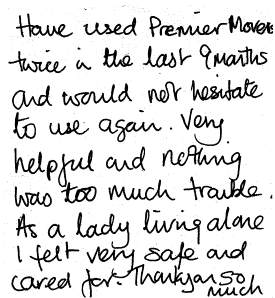 Have used Premier Movers
twice in the last 9 months
and would not hesitate
to use again. Very
helpful and nothing
was too much trouble.
As a lady living alone
I felt very safe and
cared for. Thankyou so
much